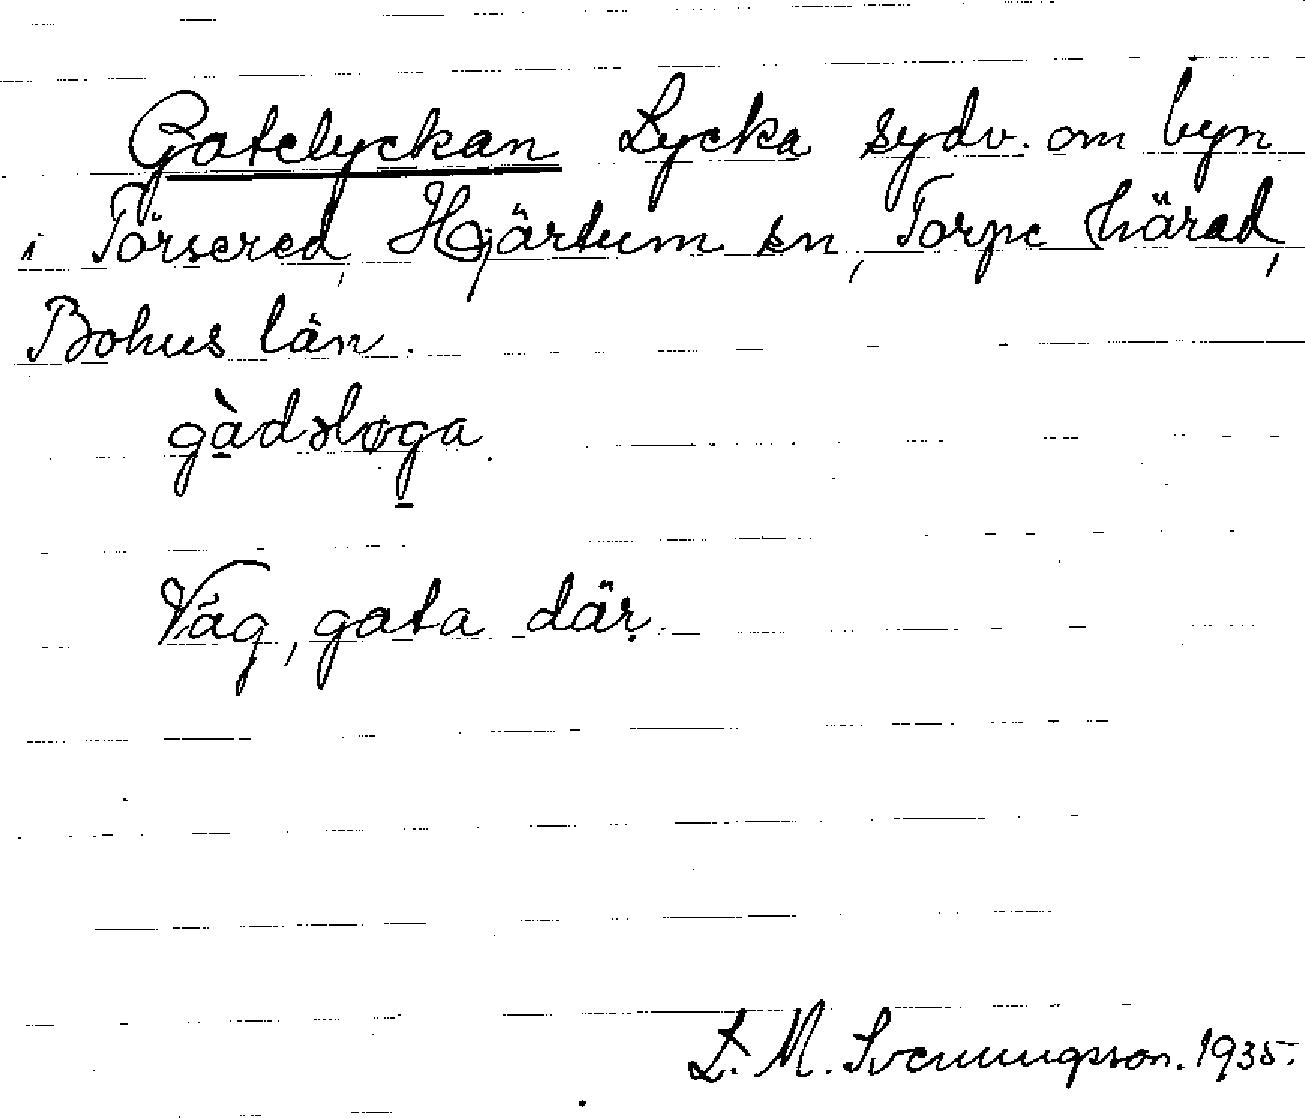 Gatelyckan Lycka sydv. om byn
i Torsered, Hjärtum sn, Torpe härad,
Bohus län.
gàdəløga.
Väg, gata där.
L. M. Svenungsson. 1935.